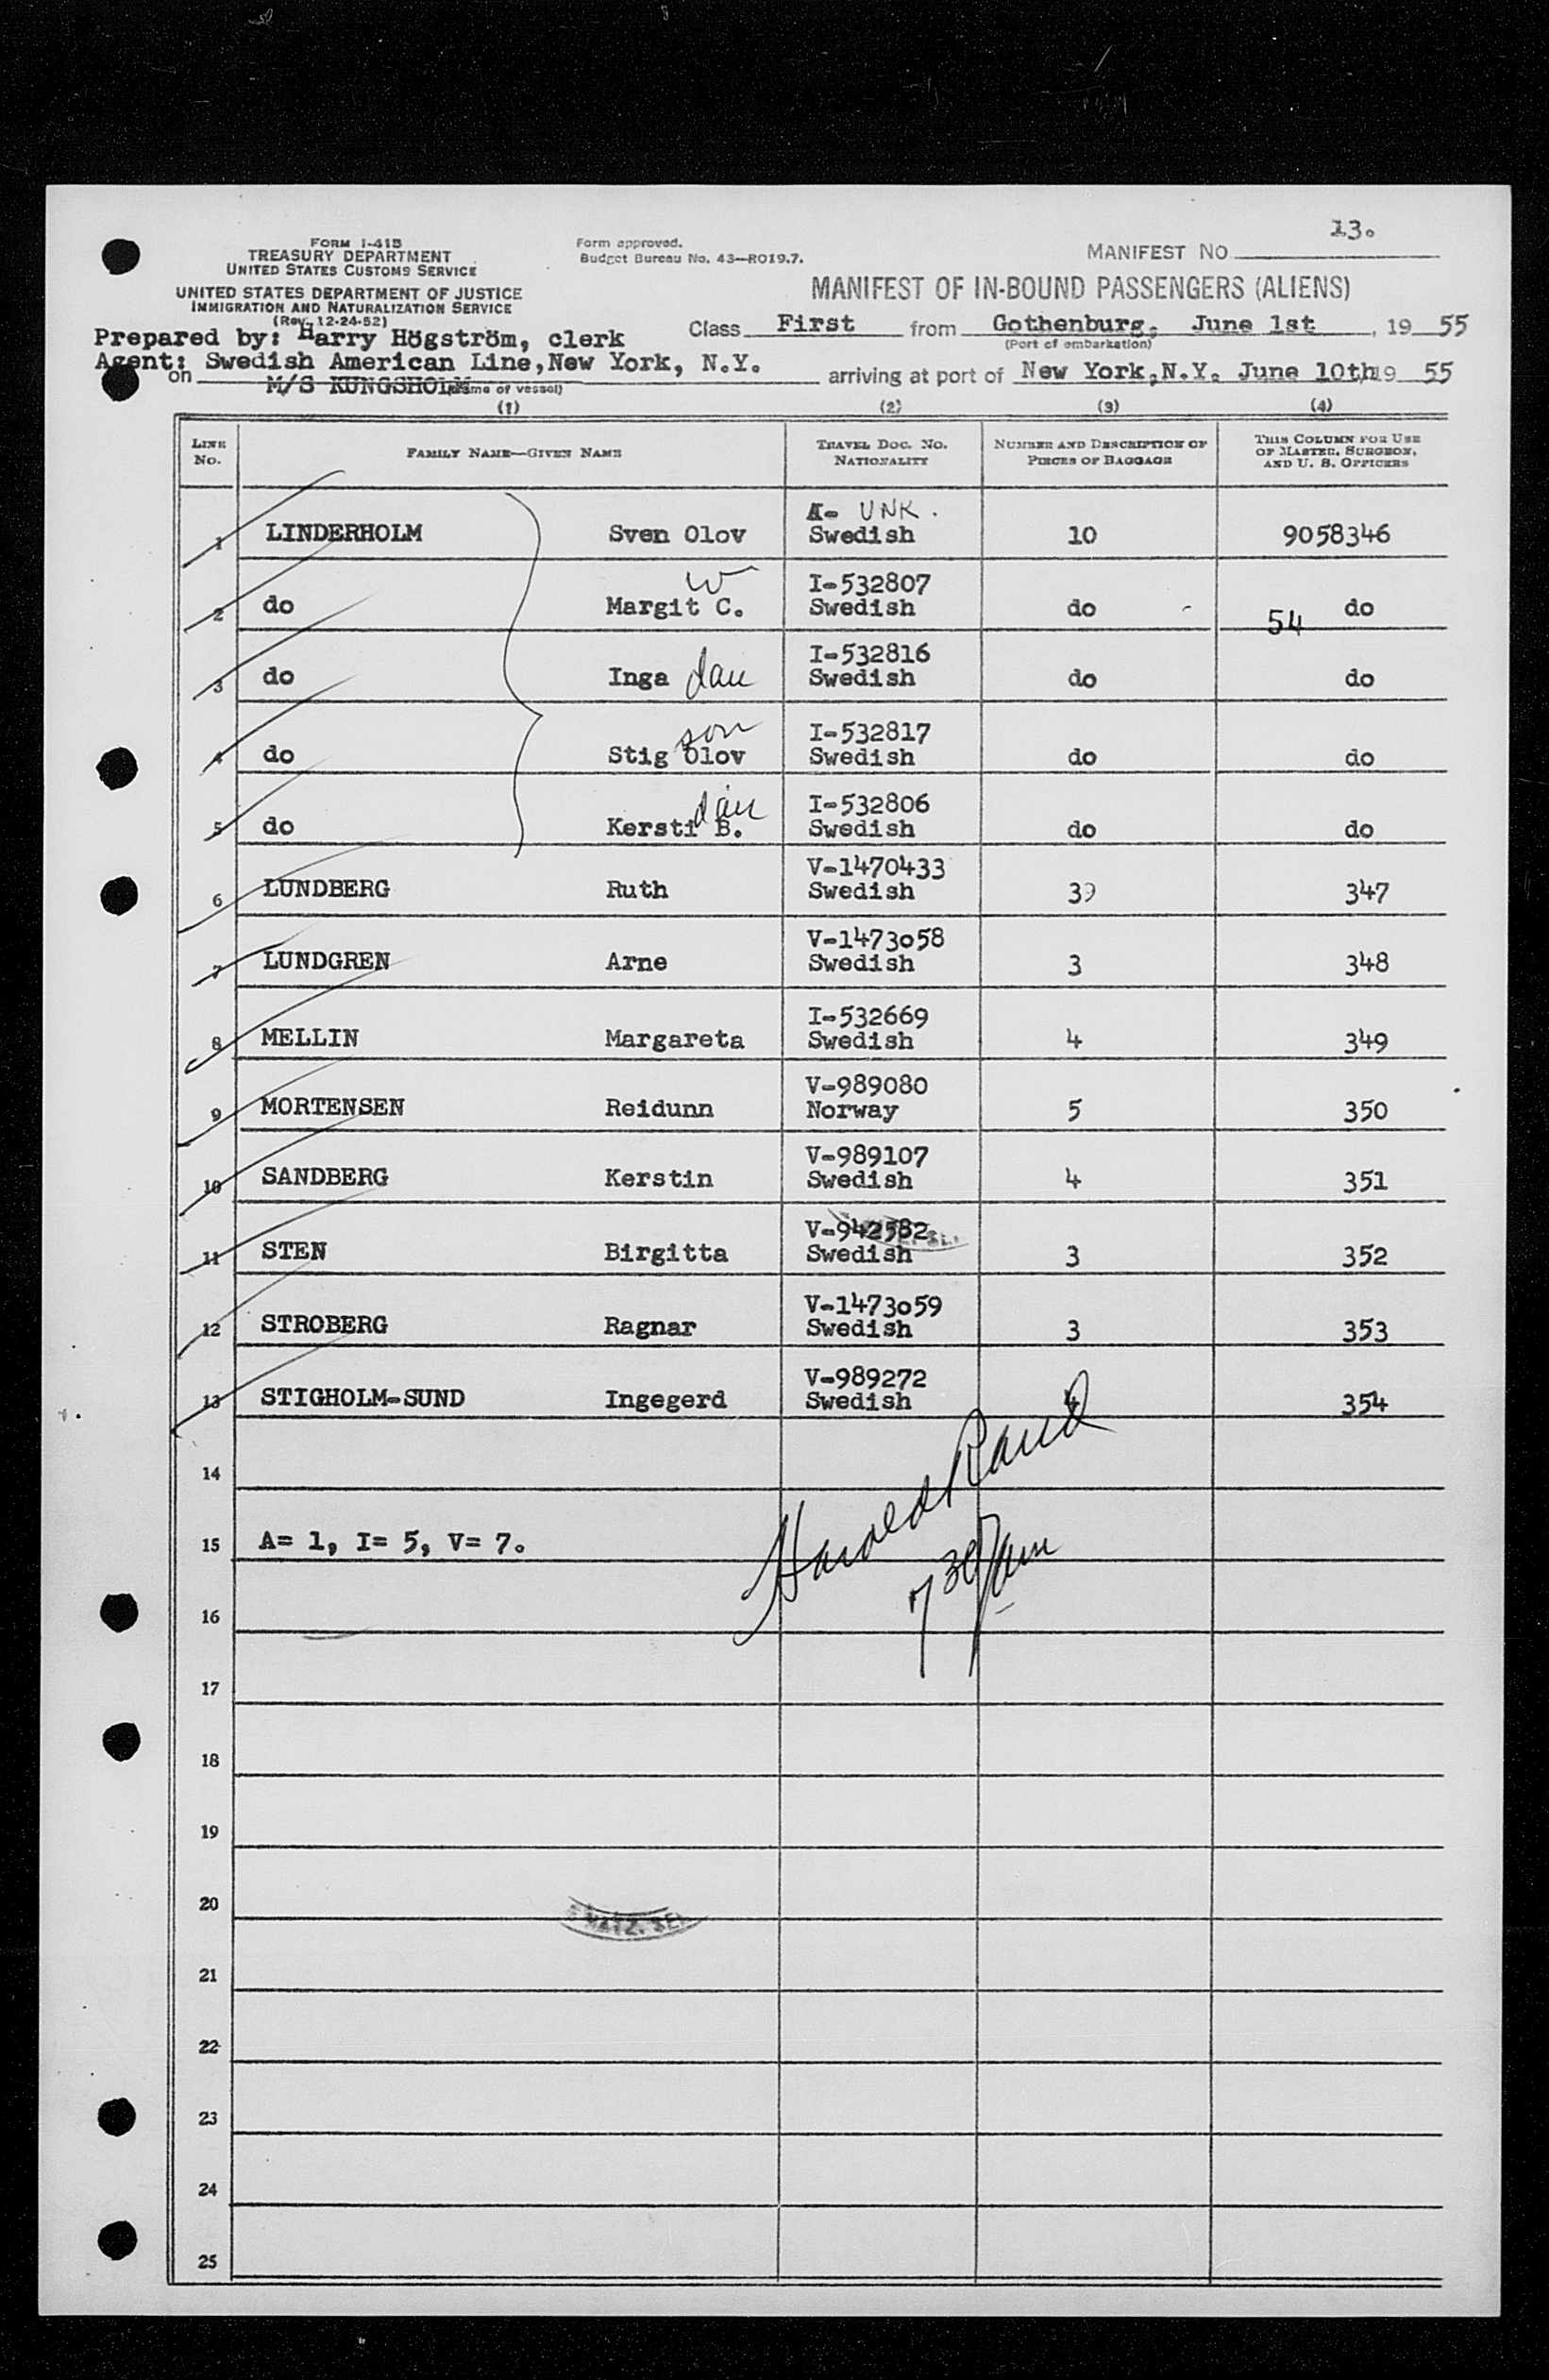 13.
MANIFEST NO
FORM I-415
TREASURY DEPARTMENT
UNITED STATES CUSTOMS SERVICE
Form approved.
Budget Bureau No. 43—RO19.7.
UNITED STATES DEPARTMENT OF JUSTICE
IMMIGRATION AND NATURALIZATION SERVICE
(Rev. 12-24-52)
MANIFEST OF IN-BOUND PASSENGERS (ALIENS)
Prepared by: Harry Högström, clerk
Class First from Gothenburg, June 1st, 19 55
(Port of embarkation)
Agent: Swedish American Line, New York, N.Y.
on M/S KUNGSHOLM (Name of vessel)
arriving at port of New York, N.Y. June 10th 19 55
(1) (2) (3) (4)
LINE NO. FAMILY NAME—GIVEN NAME TRAVEL DOC. NO. NATIONALITY NUMBER AND DESCRIPTION OF PIECES OF BAGGAGE THIS COLUMN FOR USE OF MASTER, SURGEON, AND U. S. OFFICERS
A- UNK.
1 LINDERHOLM Sven Olov Swedish 10 9058346
w I-532807
2 do Margit C. Swedish do 54 do
I-532816
3 do Inga dau Swedish do do
son I-532817
4 do Stig Olov Swedish do do
dau I-532806
5 do Kersti B. Swedish do do
V-1470433
6 LUNDBERG Ruth Swedish 39 347
V-1473058
7 LUNDGREN Arne Swedish 3 348
I-532669
8 MELLIN Margareta Swedish 4 349
V-989080
9 MORTENSEN Reidunn Norway 5 350
V-989107
10 SANDBERG Kerstin Swedish 4 351
V-942582
11 STEN Birgitta Swedish 3 352
V-1473059
12 STROBERG Ragnar Swedish 3 353
V-989272
13 STIGHOLM-SUND Ingegerd Swedish 354
14
Harold Rand
15 A= 1, I= 5, V= 7.
7 30/am
16
17
18
19
20
21
22
23
24
25